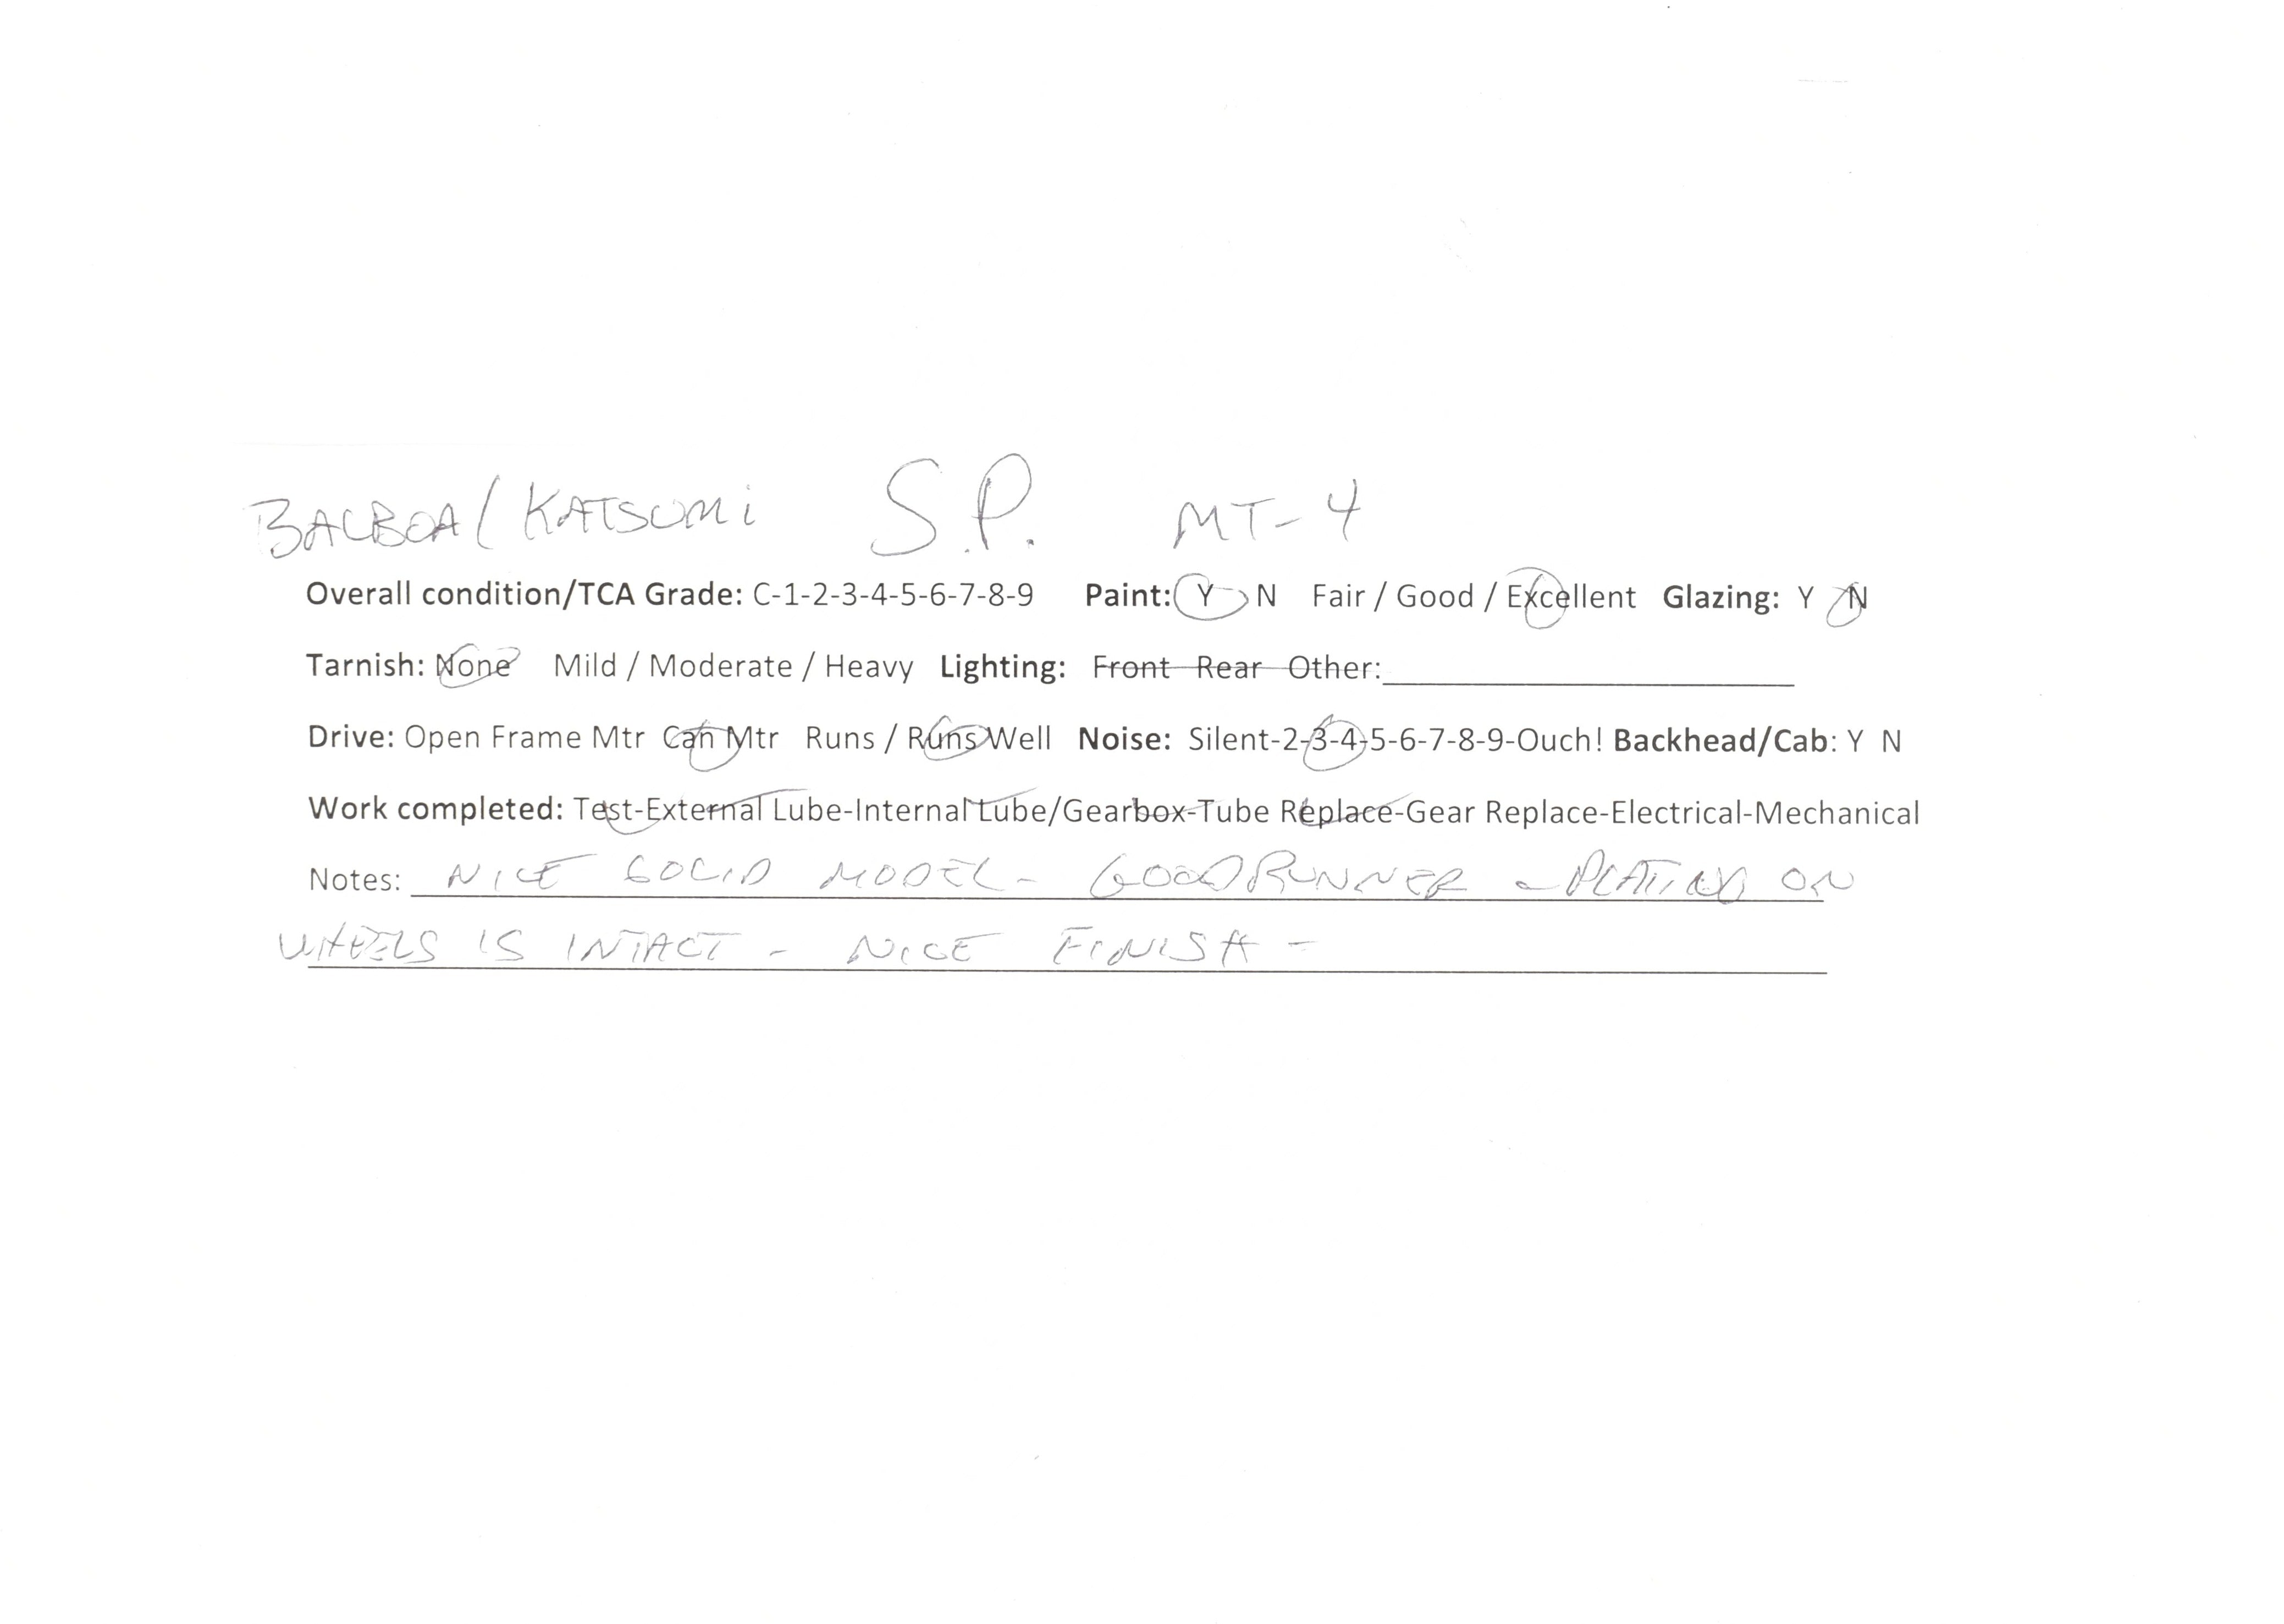 BALBOA/KATSUMi S.P. MT-4
Overall condition/TCA Grade: C-1-2-3-4-5-6-7-8-9 Paint: Y N Fair / Good / Excellent Glazing: Y N
Tarnish: None Mild / Moderate / Heavy Lighting: Front Rear Other:
Drive: Open Frame Mtr Can Mtr Runs / Runs Well Noise: Silent-2-3-4-5-6-7-8-9-Ouch! Backhead/Cab: Y N
Work completed: Test-External Lube-Internal Lube/Gearbox-Tube Replace-Gear Replace-Electrical-Mechanical
Notes: NICE SOLID MODEL - GOOD RUNNER - PLATING ON
WHEELS IS INTACT - NICE FINISH -